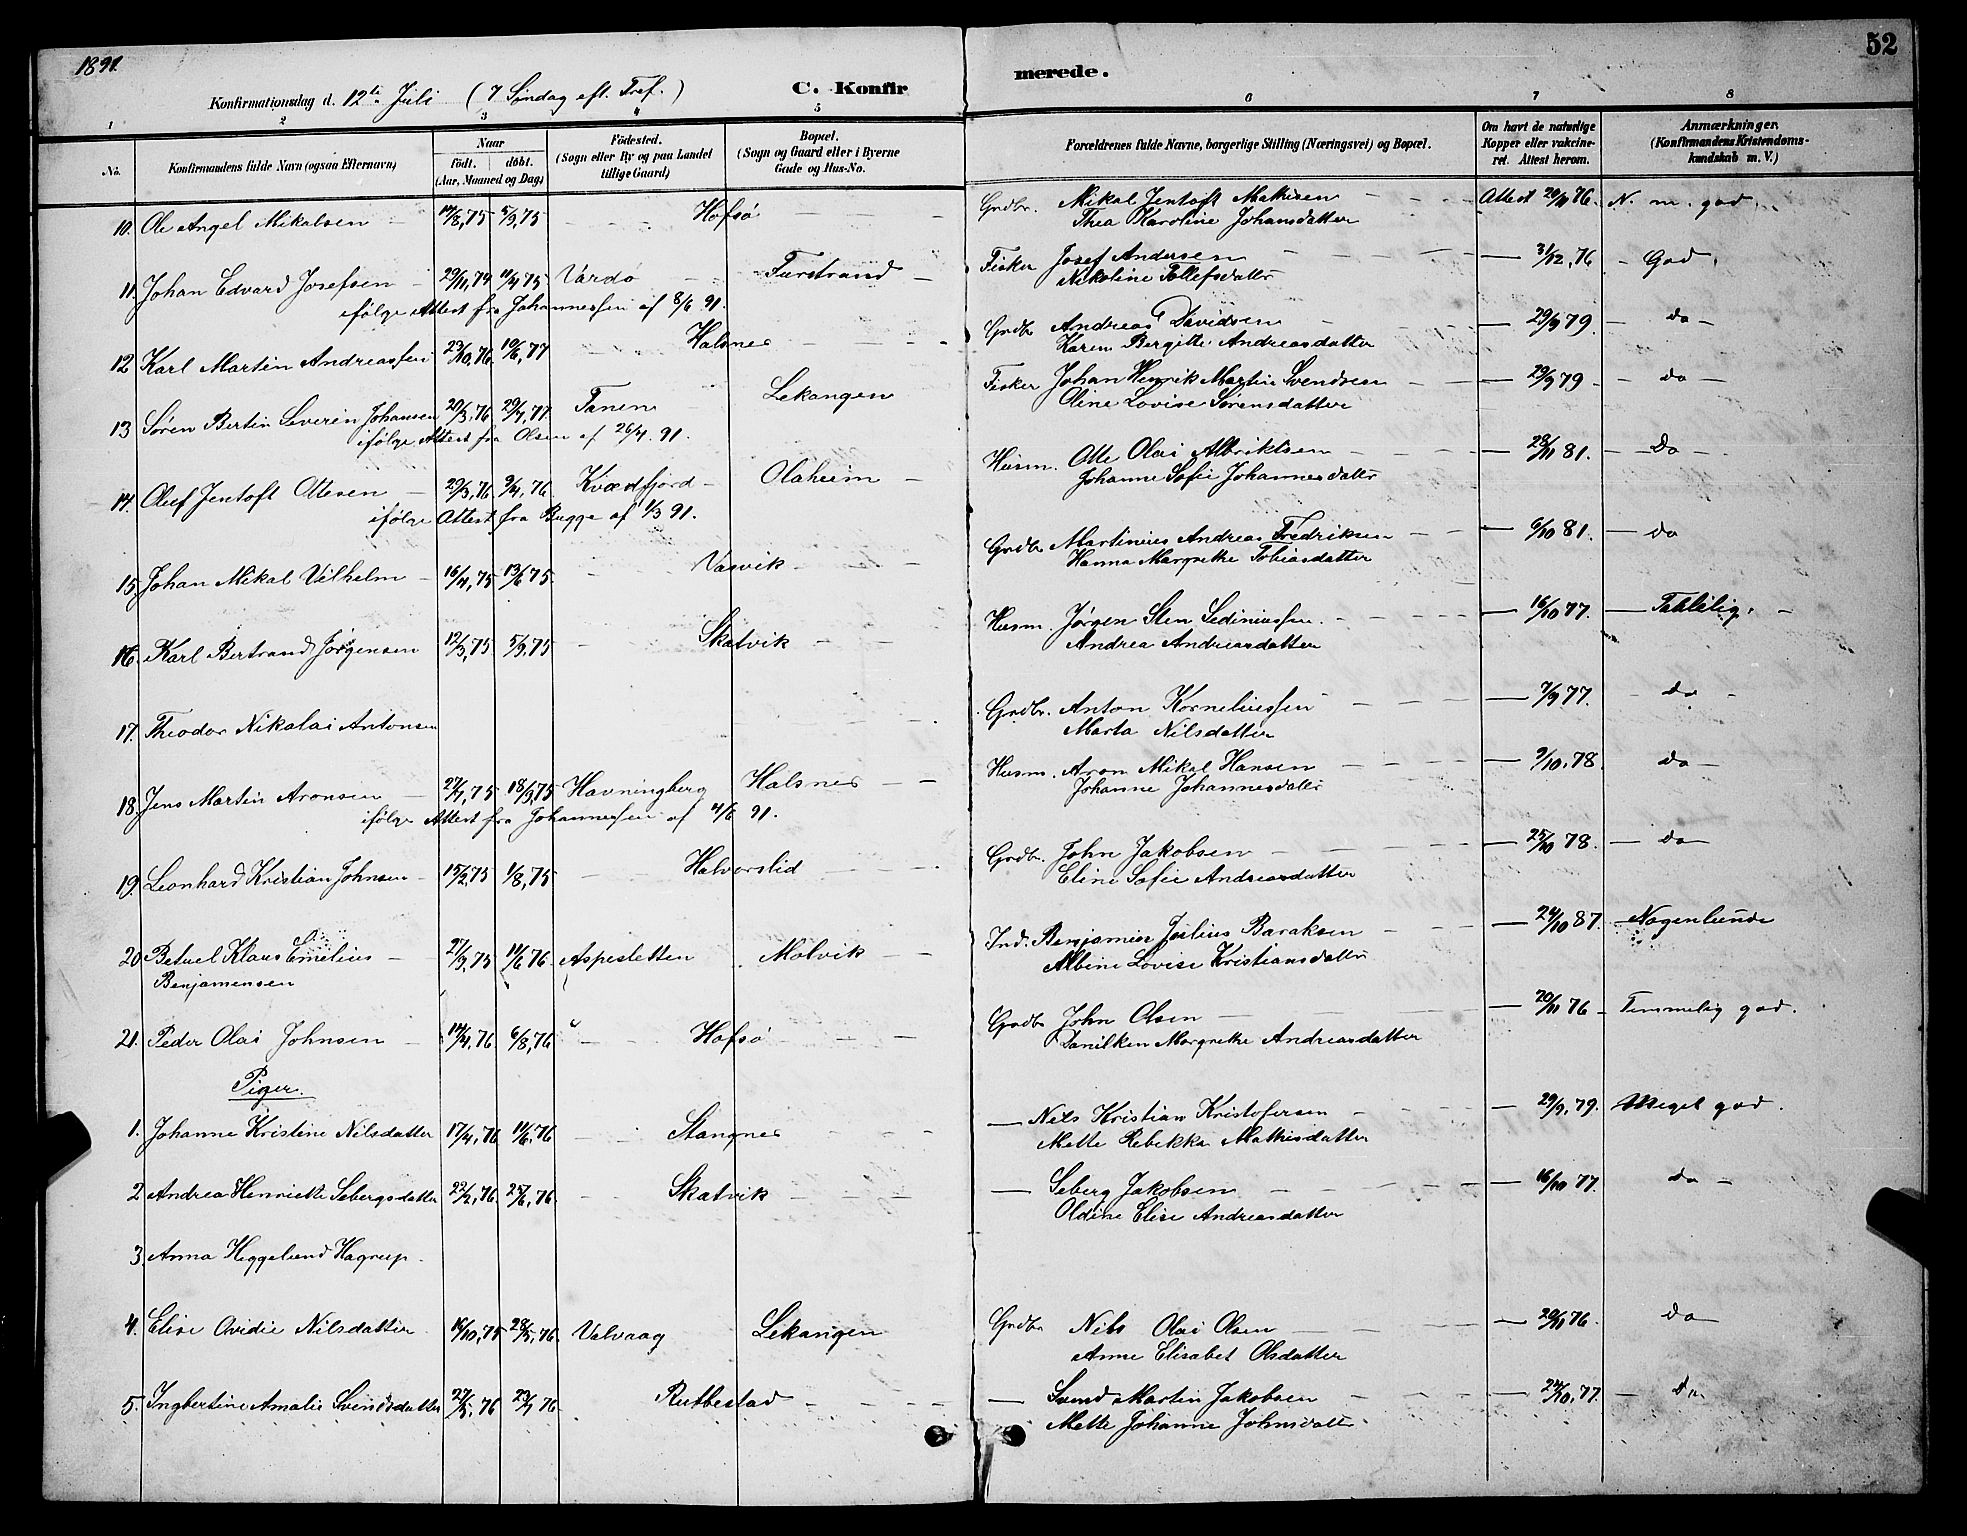 1891.
52
Konfirmationsdag d. 12te Juli (7 Søndag eft. Tref.)
C. Konfirmerede.
1 2 3 4 5 6 7 8
No. Konfirmandens fulde Navn (ogsaa Efternavn) Naar födt. döbt. (Aar, Maaned og Dag) Födested. (Sogn eller By og paa Landet tillige Gaard) Bopæl. (Sogn og Gaard eller i Byerne Gade og Hus-No. Forældrenes fulde Navne, borgerlige Stilling (Næringsvei) og Bopæl. Om havt de naturlige Kopper eller vaccineret. Attest herom. Anmærkninger. (Konfirmandens Kristendomskundskab m. V.)
10. Ole Angel Mikalsen 5/9,75 Hofsø Grdbr. Mikal Jentoft Mathisen Attest 20/11 76. N. m. god.
Thea Karoline Johansdatter
11. Johan Edvard Josefsen 29/11,74 11/4 75 Vardø Furstrand Fisker Josef Andersen 31/12,76 God.
Nikoline Tollefsdattr
ifølge Attest fra Johannessen af 8/6 91.
12 Karl Martin Andreassen 23/10,76 10/6,77 Halsnes Grdbr Andreas Davidsen 29/9 79. do
Karen Bergitte Andreasdatter
13 Søren Bertin Severin Johansen 20/3,76 29/7,77 Tanen Lekangen Fisker Johan Henrik Martin Svendsen 29/9 79 do
Oline Lovise Sørensdatter
ifølge Attest fra Olsen af 26/4. 91.
14. Oluf Jentoft Ottesen 29/3,76 9/4,76 Kvædfjord Olaheim Husm. Otte Olai Albriktsen 28/11 81. do
Johanne Sofie Johannesdattr
ifølge Attest fra Bugge af 1/3 91.
15. Johan Mikal Vilhelm 16/4,75 13/6 75 Vasvik Grdbr Martinius Andreas Fredriksen 6/10 81. do
Hanna Margrethe Tobiasdatter
16. Karl Bertrand Jørgensen 12/3,75 5/9,75 Skatvik Husm. Jørgen Sten Sediniussen. 16/10 77. Taalelig.
Andrea Andreasdatter
17. Theodor Nikolai Antonsen Grdbr. Anton Korneliussen 7/9 77. do
Marta Nilsdatter
18. Jens Martin Aronsen 27/7,75 18/9,75 Havningberg Halsnes Husm. Aron Mikal Hansen 9/10,78. do
Johanne Johannesdattr
ifølge Attest fra Johannessen af 4/6 91.
19. Leonhard Kristian Johnsen 15/2,75 1/8,75 Halvorslid Grdbr. John Jakobsen 25/10 78. do
Eline Sofie Andreasdatter
20 Betuel Klaus Emelius 27/9,75 11/6 76 Aspesletten Molvik Ind. Benjamin Julius Baraksen 24/10 87. Nogenlunde
Benjamensen Albine Lovise Kristiansdattr
21. Peder Olai Johnsen 14/4,76 6/8,76 Hofsø Grdbr John Olsen 20/11 76 Temmelig god.
Danilken Margrethe Andreasdatter
Piger.
1. Johanne Kristine Nilsdatter 17/4,76 11/6,76 Stangnes Nils Kristian Kristofersen 29/9,79. Meget god.
Mette Rebekka Mathisdatter
2 Andrea Henriette Sebergsdatter 22/2,76. 25/6,76 Skatvik Seberg Jakobsen 16/10 77. do
Oldine Elise Andreasdatter
3. Anna Heggelund Hagrup.
4. Elise Ovidie Nilsdatter 16/10,75 28/5,76 Valvaag Lekangen Grdbr Nils Olai Olsen 20/11 76. do
Anne Elisabet Olsdatter
5. Ingbertine Amalie Svendsdatter 27/5,76 23/7 76 Rubbestad Svend Martin Jakobsen 24/10,77. do
Mette Johanne Johnsdattr